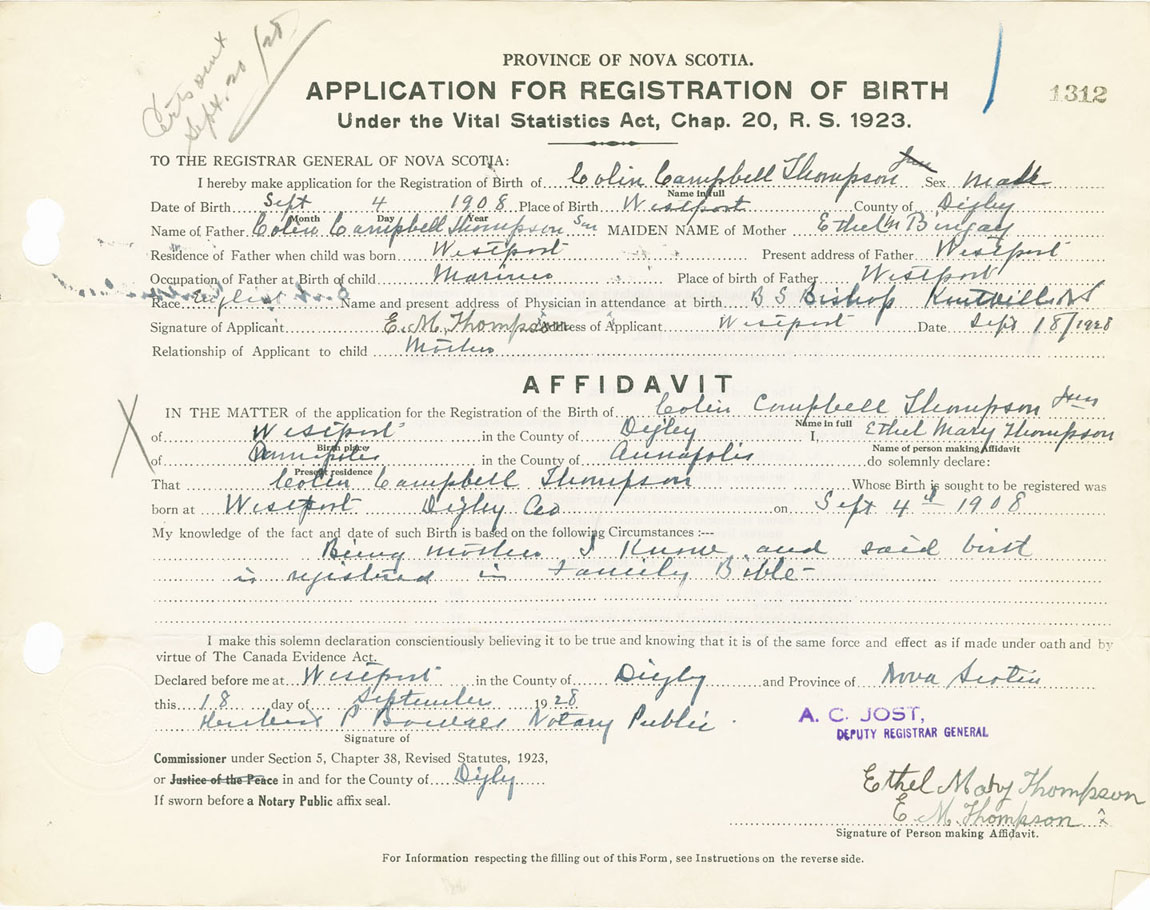 Certs sent
Sept. 20/28
PROVINCE OF NOVA SCOTIA.
APPLICATION FOR REGISTRATION OF BIRTH
1312
Under the Vital Statistics Act, Chap. 20, R. S. 1923.
TO THE REGISTRAR GENERAL OF NOVA SCOTIA:
I hereby make application for the Registration of Birth of Colin Campbell Thompson Jun Sex Male
Name in full
Date of Birth Sept 4 1908 Place of Birth Westport County of Digby
Month Day Year
Name of Father Colin Campbell Thompson Sen MAIDEN NAME of Mother Ethel M Bingay
Residence of Father when child was born Westport Present address of Father Westport
Occupation of Father at Birth of child Mariner Place of birth of Father Westport
Race English Name and present address of Physician in attendance at birth B S Bishop Kentville N S
Signature of Applicant E. M. Thompson Address of Applicant Westport Date Sept 18/1928
Relationship of Applicant to child Mother
AFFIDAVIT
IN THE MATTER of the application for the Registration of the Birth of Colin Campbell Thompson Jun
Name in full
of Westport in the County of Digby I, Ethel Mary Thompson
Birth place Name of person making Affidavit
of Annapolis in the County of Annapolis do solemnly declare:
Present residence
That Colin Campbell Thompson Whose Birth is sought to be registered was
born at Westport Digby Co on Sept 4th 1908
My knowledge of the fact and date of such Birth is based on the following Circumstances :---
Being Mother I Know and said birth
is registered in Family Bible-
I make this solemn declaration conscientiously believing it to be true and knowing that it is of the same force and effect as if made under oath and by
virtue of The Canada Evidence Act.
Declared before me at Westport in the County of Digby and Province of Nova Scotia
this 18 day of September 1928
P Notary Public
Signature of
A. C. JOST,
DEPUTY REGISTRAR GENERAL
Commissioner under Section 5, Chapter 38, Revised Statutes, 1923,
or Justice of the Peace in and for the County of Digby
If sworn before a Notary Public affix seal.
Ethel Mary Thompson
E. M. Thompson x
Signature of Person making Affidavit.
For Information respecting the filling out of this Form, see Instructions on the reverse side.